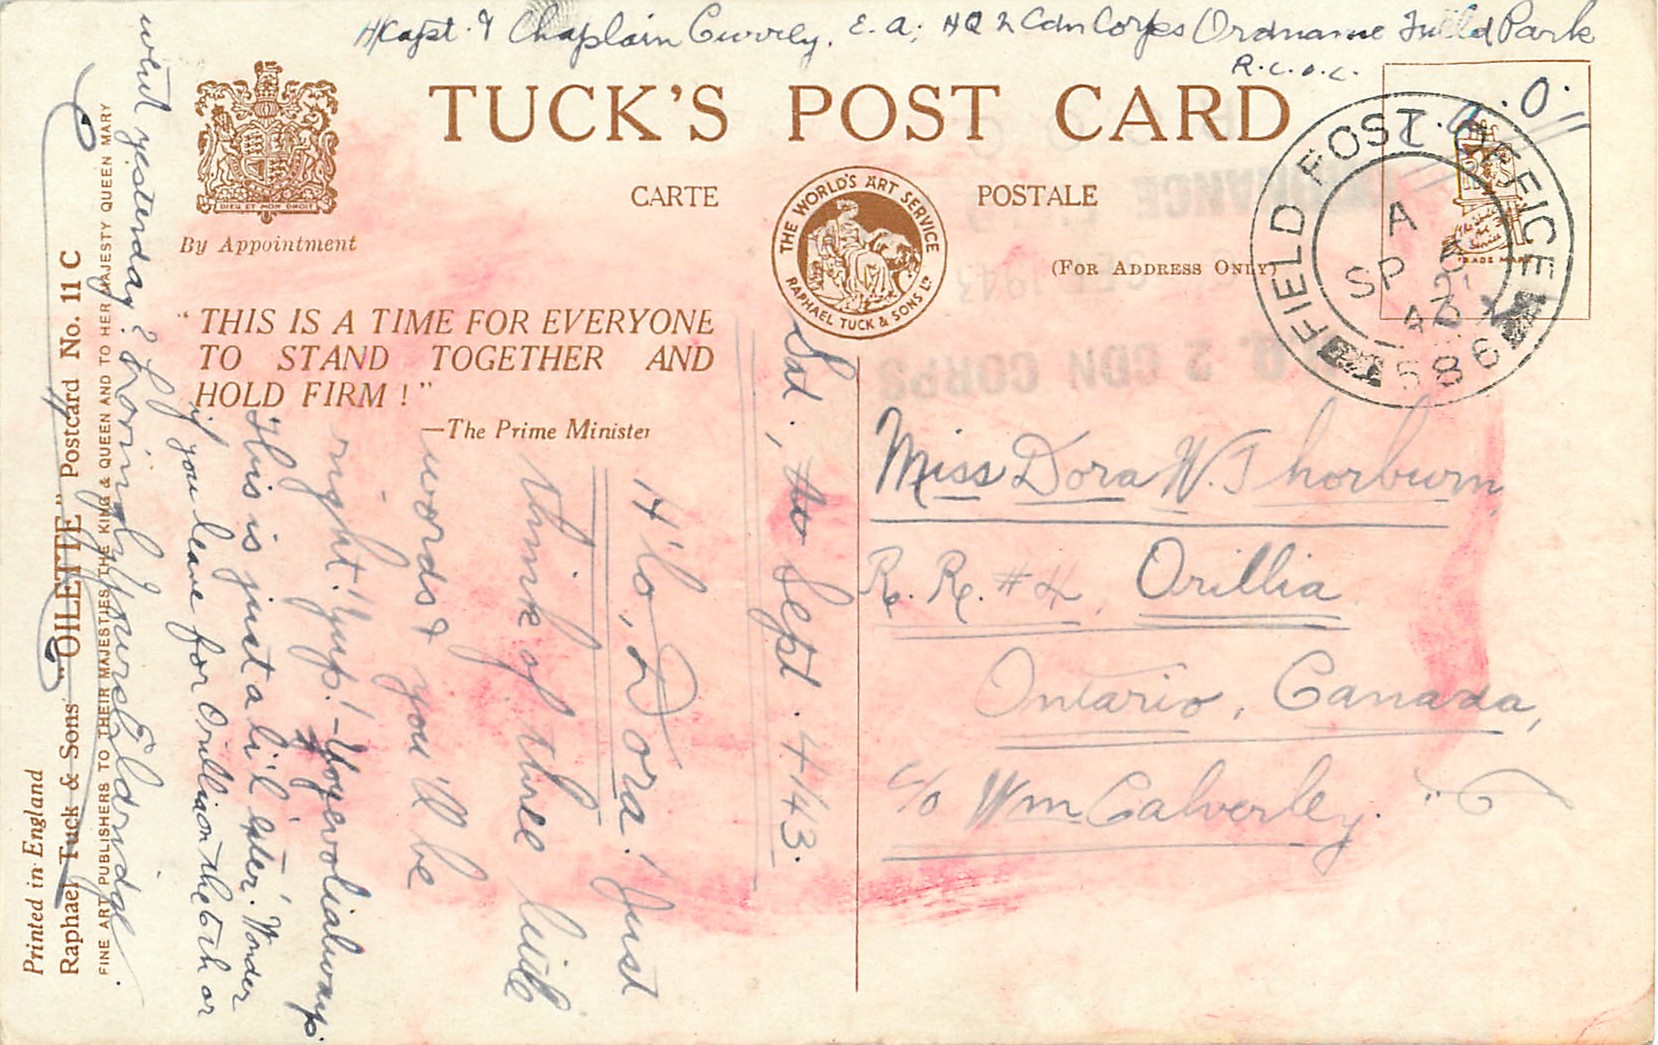 H/Capt. & Chaplain Currey, E. A; HQ 2 Cdn Corps Ordnance Field Park
R.C.O.C.
TUCK'S POST CARD
CARTE POSTALE
THE WORLD'S ART SERVICE
RAPHAEL TUCK & SONS LD
DIEU ET MON DROIT
By Appointment
(FOR ADDRESS ONLY)
FIELD POST OFFICE
A
SP
43
586
TRADE MARK
"THIS IS A TIME FOR EVERYONE
TO STAND TOGETHER AND
HOLD FIRM!"
—The Prime Minister
2 CDN CORPS
Sat., Sept. 4/43.
H'lo, Dora! Just
think of three little
words & you'll be
right! Yup!
This is just a li'l 'ster. Wonder
if you leave for Orillia on the 6th or
went yesterday? Lovingly yours Eldridge.
Miss Dora W. Thorburn,
R. R. #4, Orillia
Ontario, Canada,
c/o Wm Calverley.
Printed in England
Raphael Tuck & Sons "OILETTE" Postcard No. 11 C
FINE ART PUBLISHERS TO THEIR MAJESTIES THE KING & QUEEN AND TO HER MAJESTY QUEEN MARY